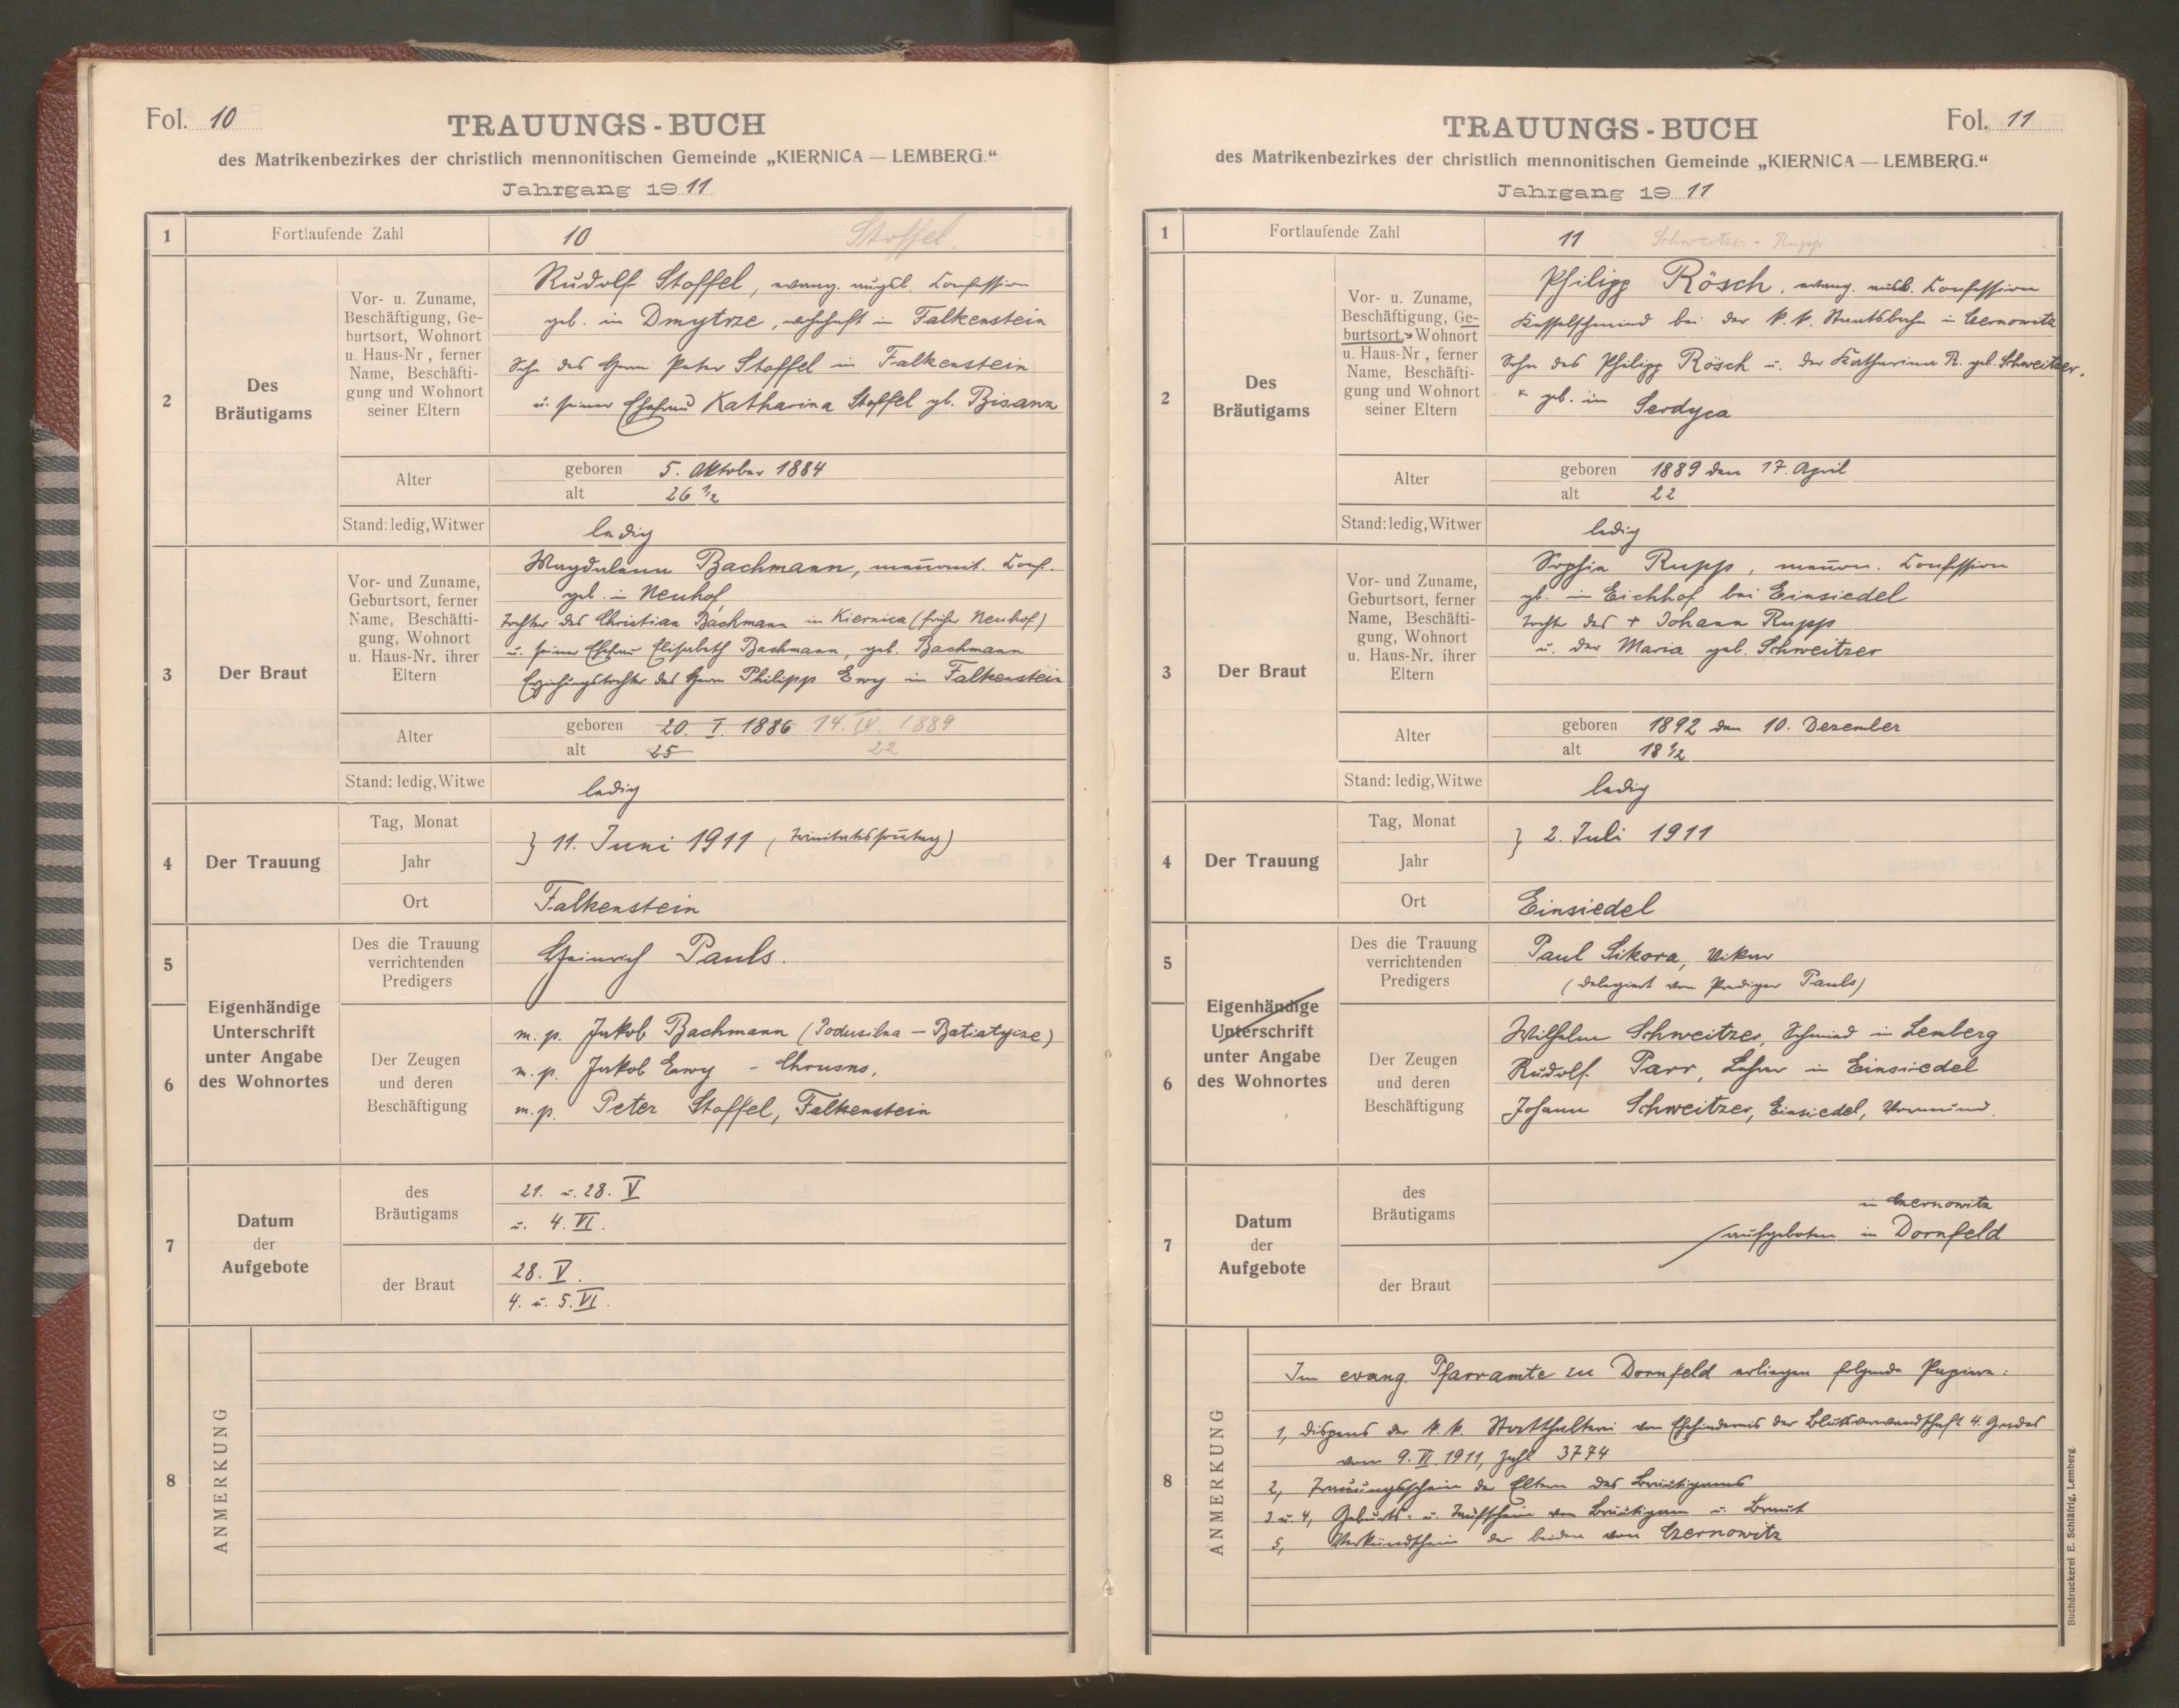 Fol. 10
TRAUUNGS-BUCH
des Matrikenbezirkes der christlich mennonitischen Gemeinde „KIERNICA — LEMBERG."
Jahrgang 1911
1
Fortlaufende Zahl
10
Stoffel.
2
Des
Bräutigams
Vor- u. Zuname,
Beschäftigung, Ge-
burtsort, Wohnort
u. Haus-Nr, ferner
Name, Beschäfti-
gung und Wohnort
seiner Eltern
Rudolf Stoffel, evang. augsb. Confession
geb. in Dmytrze, wohnhaft in Falkenstein
Sohn des Herrn Peter Stoffel in Falkenstein
u. seiner Ehefrau Katharina Stoffel gb. Bisanz
Alter
geboren 5. Oktober 1884
alt 26 1/2
Stand: ledig, Witwer
ledig
3
Der Braut
Vor- und Zuname,
Geburtsort, ferner
Name, Beschäfti-
gung, Wohnort
u. Haus-Nr. ihrer
Eltern
Magdalena Bachmann, meñonit. Conf.
geb. in Neuhof,
Tochter des Christian Bachmann in Kiernica (früher Neuhof)
u. seiner Ehefrau Elisabeth Bachmann, geb. Bachmann
Erziehungstochter des Herrn Philipp Ewy in Falkenstein
Alter
geboren 20. I. 1886 14. IV. 1889
alt 25 22
Stand: ledig, Witwe
ledig
4
Der Trauung
Tag, Monat
Jahr
} 11. Juni 1911 (Trinitatissoñtag)
Ort
Falkenstein
5
Des die Trauung
verrichtenden
Predigers
Heinrich Pauls.
6
Eigenhändige
Unterschrift
unter Angabe
des Wohnortes
Der Zeugen
und deren
Beschäftigung
m. p. Jakob Bachmann (Podusilna — Batiatycze)
m. p. Jakob Ewy - Chrusno,
m. p. Peter Stoffel, Falkenstein
7
Datum
der
Aufgebote
des
Bräutigams
21. u. 28. V
u. 4. VI.
der Braut
28. V.
4. u. 5. VI.
8
ANMERKUNG
Fol. 11
TRAUUNGS-BUCH
des Matrikenbezirkes der christlich mennonitischen Gemeinde „KIERNICA — LEMBERG."
Jahrgang 1911
1
Fortlaufende Zahl
11
Schweitzer - Rupp
2
Des
Bräutigams
Vor- u. Zuname,
Beschäftigung, Ge-
burtsort, Wohnort
u. Haus-Nr, ferner
Name, Beschäfti-
gung und Wohnort
seiner Eltern
Philipp Rösch, evang. augsb. Confession
Kesselschmied bei der k. k. Staatsbahn in Czernowitz
Sohn des Philipp Rösch u. der Katharina R. geb. Schweitzer.
geb. in Serdyca
Alter
geboren 1889 den 17. April
alt 22
Stand: ledig, Witwer
ledig
3
Der Braut
Vor- und Zuname,
Geburtsort, ferner
Name, Beschäfti-
gung, Wohnort
u. Haus-Nr. ihrer
Eltern
Sophia Rupp, meñon. Confession
gb. in Eichhof bei Einsiedel
Tochter des + Johann Rupp
u. der Maria geb. Schweitzer
Alter
geboren 1892 den 10. Dezember
alt 18 1/2
Stand: ledig, Witwe
ledig
4
Der Trauung
Tag, Monat
Jahr
} 2. Juli 1911
Ort
Einsiedel
5
Des die Trauung
verrichtenden
Predigers
Paul Sikora, Vikar
(delegiert von Prediger Pauls)
6
Eigenhändige
Unterschrift
unter Angabe
des Wohnortes
Der Zeugen
und deren
Beschäftigung
Wilhelm Schweitzer, Schmied in Lemberg
Rudolf Parr, Lehrer in Einsiedel
Johann Schweitzer, Einsiedel, Vormund.
7
Datum
der
Aufgebote
des
Bräutigams
in Czernowitz
aufgeboten in Dornfeld
der Braut
8
ANMERKUNG
Im evang. Pfarramte zu Dornfeld erliegen folgende Papiere:
1, Dispens der k. k. Statthalterei vom Ehehindernis der Blutsverwandtschaft 4. Grades
vom 9. VI. 1911, Zahl 3774
2, Trauungsschein der Eltern des Bräutigams
3 u. 4, Geburts- u. Taufschein von Bräutigam u. Braut
5, Verkündschein der beiden von Czernowitz
Buchdruckerei E. Schläfrig, Lemberg